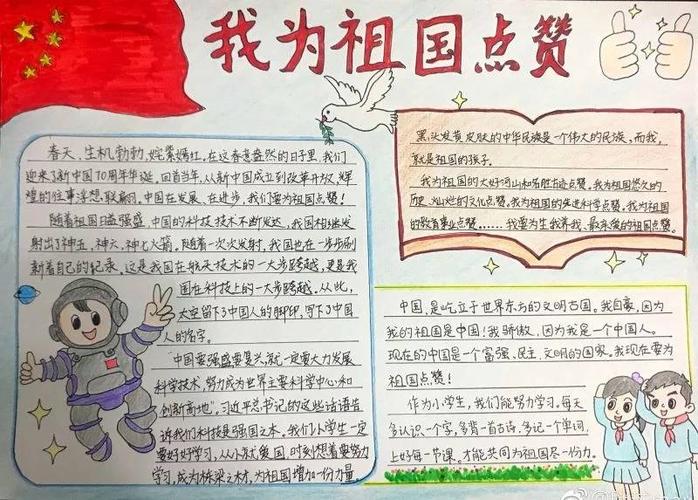 我为祖国点赞
春天，生机勃勃，姹紫嫣红，在这春意盎然的日子里，我们
迎来了新中国70周年华诞，回首当年，从新中国成立到改革开放，辉
煌的往事浮想联翩，中国在发展，在进步，我们要为祖国点赞！
随着祖国日益强盛，中国的科技技术不断发达，我国相继发
射出了神五，神六，神七火箭。随着一次次发射，我国也在一步步刷
新着自己的纪录。这是我国在航天技术的一大步跨越，更是我
国在科技上的一大步跨越。从此，
太空留下了中国人的脚印，写下了中国
人的名字。
"中国要强盛要复兴，就一定要大力发展
科学技术，努力成为世界主要科学中心和
创新高地"。习近平总书记的这些话语告
诉我们科技是强国之本。我们小学生一定
要好好学习，从小就爱国，时刻想着要努力
学习，成为栋梁之材，为祖国增加一份力量
黑头发黄皮肤的中华民族是一个伟大的民族。而我，
就是祖国的孩子。
我为祖国的大好河山和名胜古迹点赞。我为祖国悠久的
历史，灿烂的文化点赞。我为祖国的先进科学点赞。我为祖国
的教育事业点赞……我要为生我养我、最亲爱的祖国点赞。
中国，是屹立于世界东方的文明古国。我自豪，因为
我的祖国是中国！我骄傲，因为我是一个中国人。
现在的中国是一个富强、民主、文明的国家。我现在要为
祖国点赞！
作为小学生，我们能努力学习。每天
多认识一个字，多背一首古诗，多记一个单词，
上好每一节课，才能共同为祖国尽一份力。